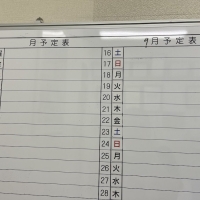 月予定表
9月予定表
16 土
17 日
18 月
19 火
20 水
21 木
22 金
23 土
24 日
25 月
26 火
27 水
28 木